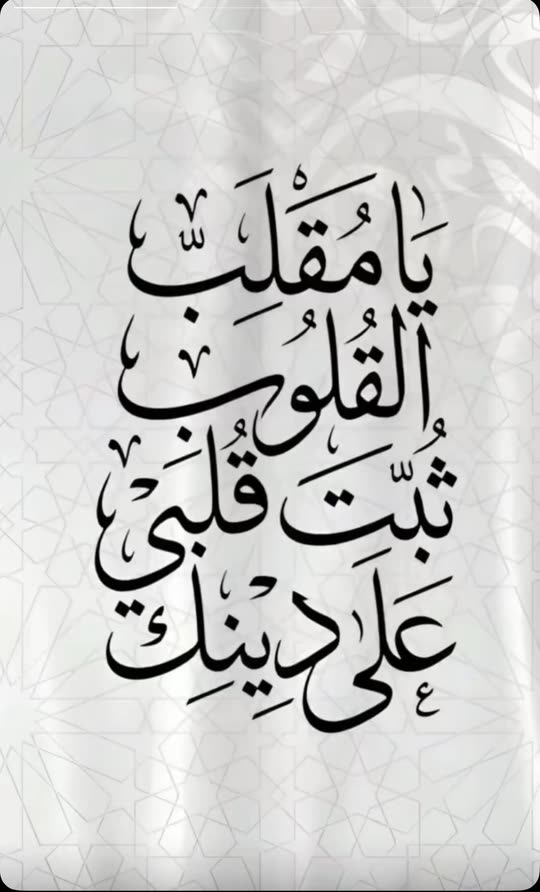 يَا مُقَلِّبَ
القُلُوب
ثُبِّتَ قُلبَي
عَلَى دِينِكَ